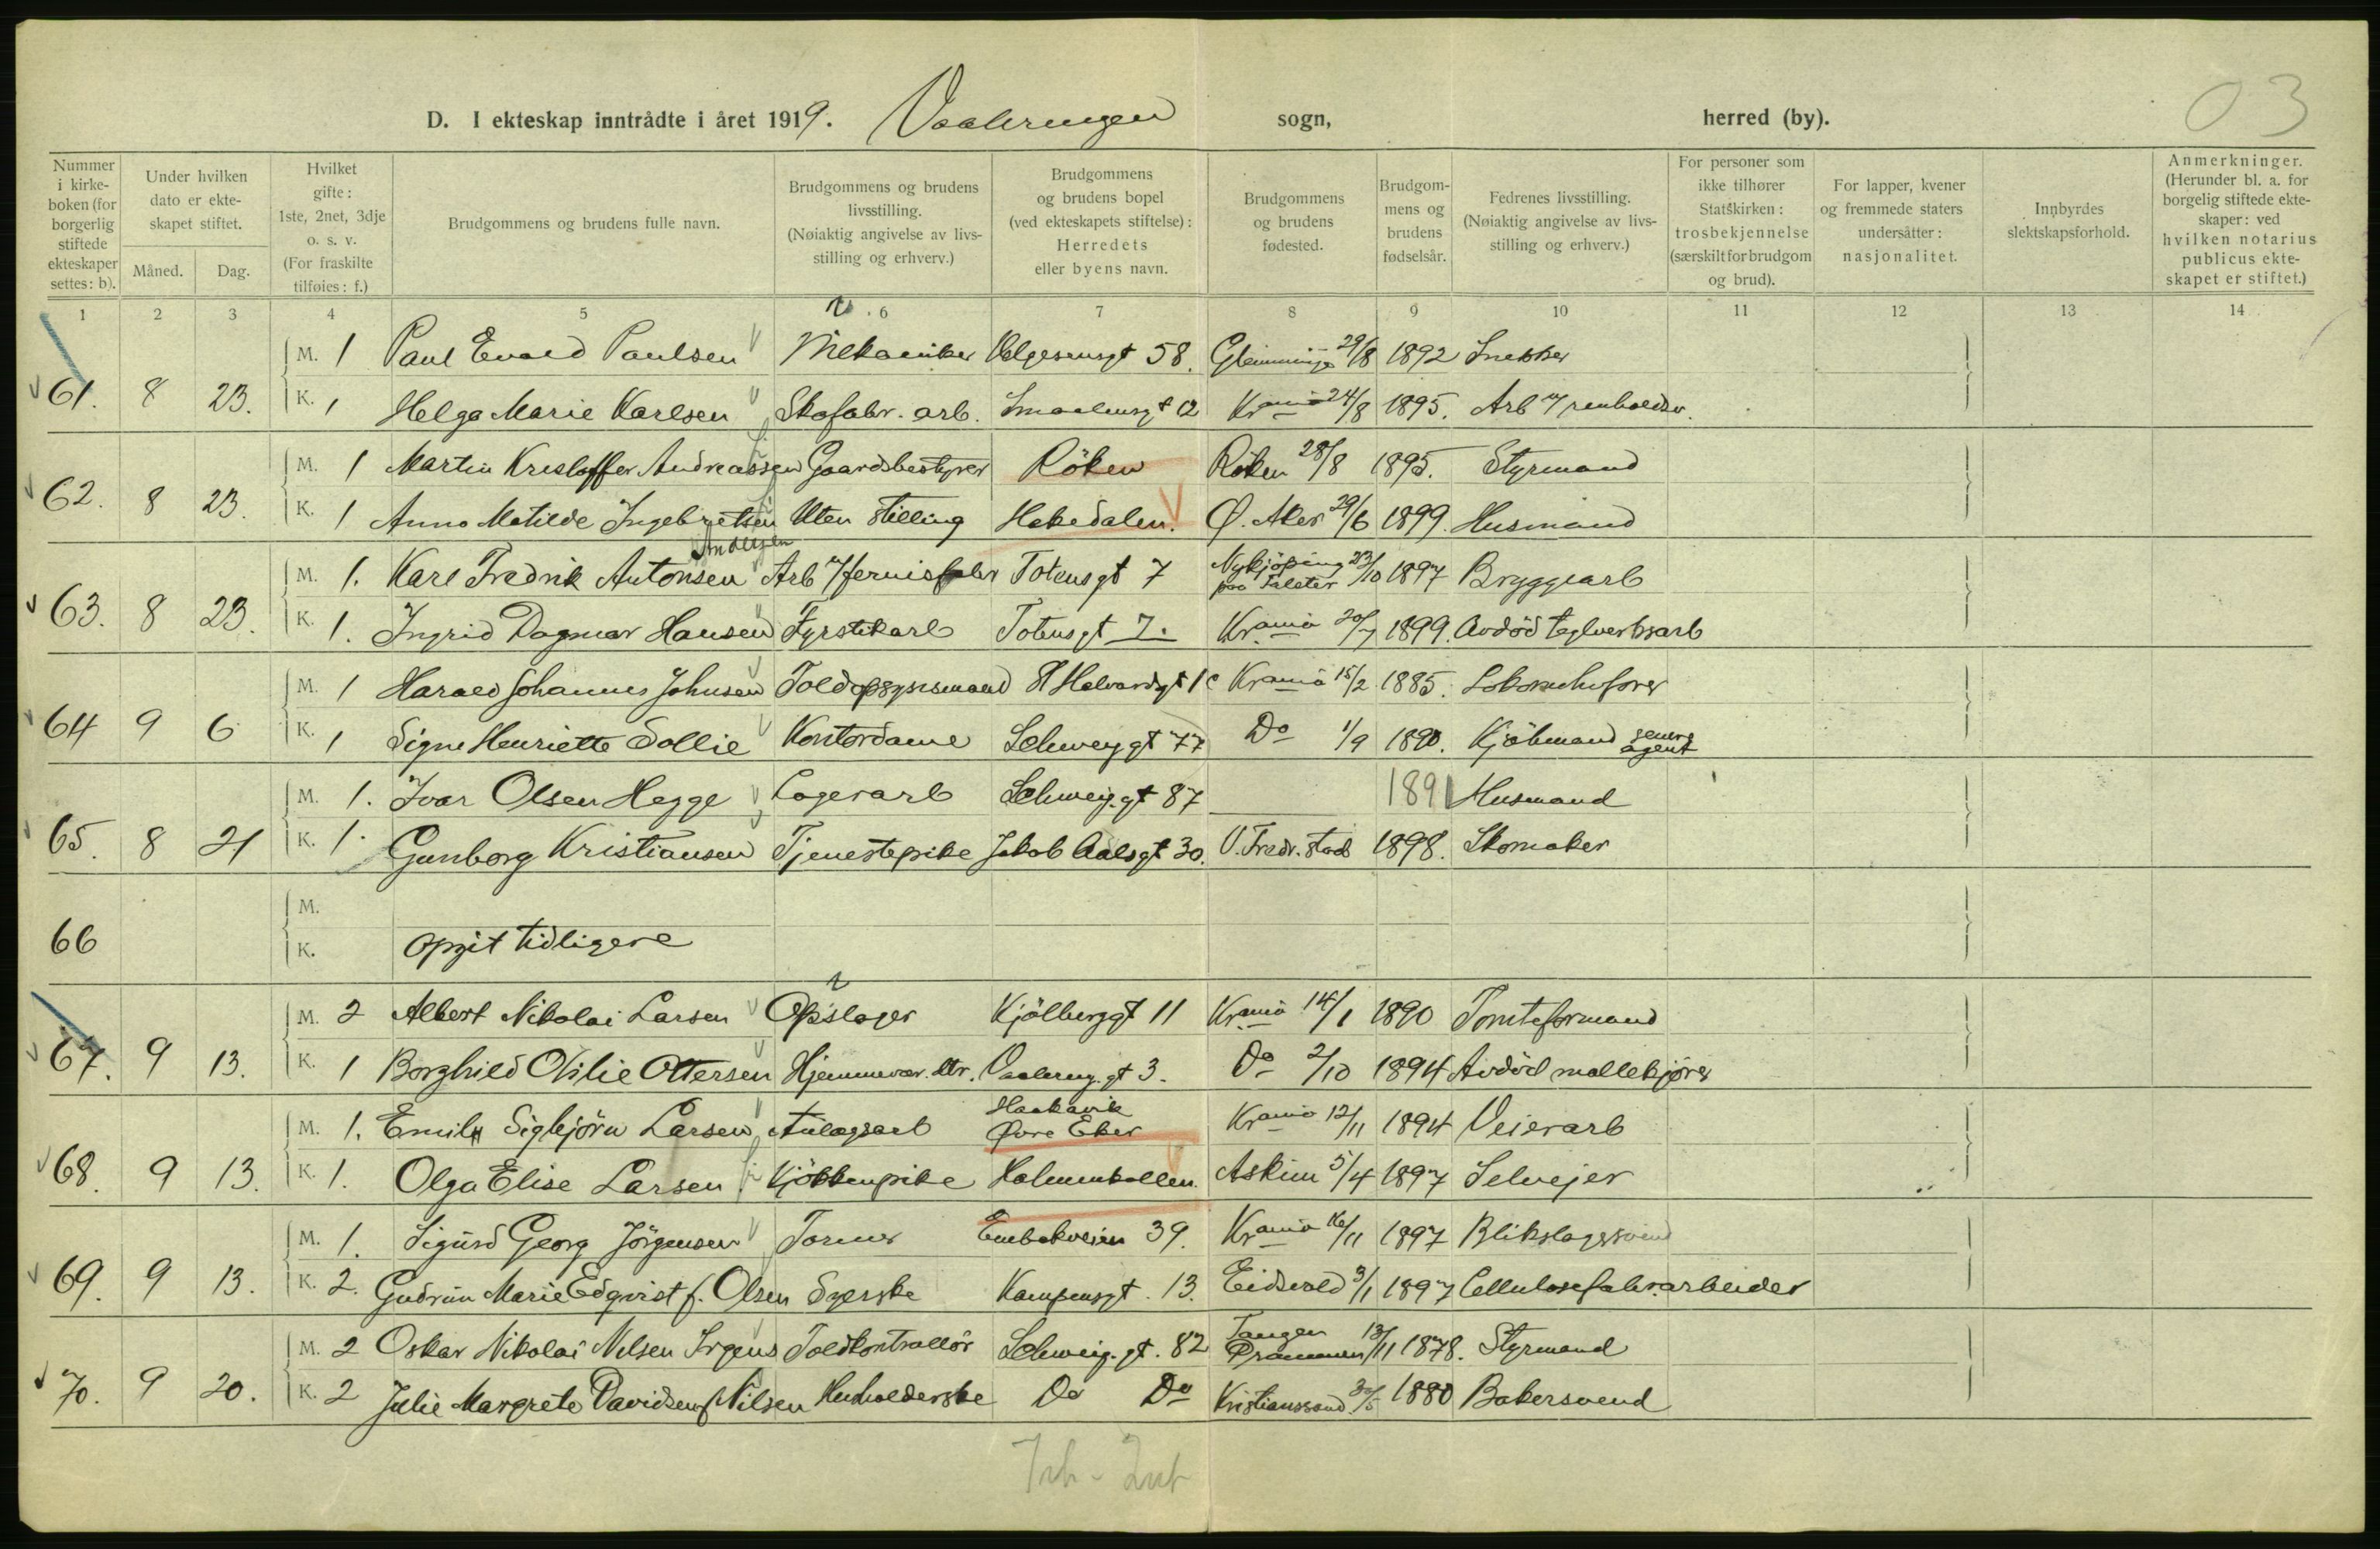 03
D. I ekteskap inntrådte i året 1919. Vaalerengen sogn, herred (by).
Nummer i kirkeboken (for borgerlig stiftede ekteskaper settes: b).
Under hvilken dato er ekteskapet stiftet.
Måned. Dag.
Hvilket gifte: 1ste, 2net, 3dje o. s. v. (For fraskilte tilføies: f.)
Brudgommens og brudens fulle navn.
Brudgommens og brudens livsstilling. (Nøiaktig angivelse av livsstilling og erhverv.)
Brudgommens og brudens bopel (ved ekteskapets stiftelse): Herredets eller byens navn.
Brudgommens og brudens fødested.
Brudgommens og brudens fødselsår.
Fedrenes livsstilling. (Nøiaktig angivelse av livsstilling og erhverv.)
For personer som ikke tilhører Statskirken: trosbekjennelse (særskilt for brudgom og brud).
For lapper, kvener og fremmede staters undersåtter: nasjonalitet.
Innbyrdes slektskapsforhold.
Anmerkninger. (Herunder bl. a. for borgelig stiftede ekteskaper: ved hvilken notarius publicus ekteskapet er stiftet.)
1 2 3 4 5 6 7 8 9 10 11 12 13 14
M. 1 Paul Evald Paulsen Mekaniker 58. Glemminge 29/8 1892 Snekker
61. 8 23. K. 1 Helga Marie Karlsen Skofabr. arb. Smaalensgt 12 Kr.ania 24/8 1895. Arb v/ renholdsv.
M. 1 Martin Kristoffer Andreassen Gaardsbestyrer Röken Röken 28/8 1895. Styrmand
62. 8 23. K. 1 Anna Matilde Ingebretsen Uten stilling Hakedalen. Ø. Aker 29/6 1899. Husmand
Andersen
M. 1. Karl Fredrik Antonsen Arb v/ fernisfabr Totensgt 7 Nykjöping paa Falster 23/10 1897 Bryggearb
63. 8 23. K. 1. Ingrid Dagmar Hansen Fyrstikarb Totensgt 7. Kr.ania 20/7 1899. Avdöd teglverksarb
M. 1 Harald Johannes Johnsen Toldopsynsmand St Halvardsgt 1c Kr.ania 15/2 1885. Lokomotivförer
64 9 6 K. 1 Signe Henriette Sollie Kontordame Schweig gt 77 Do 1/9 1890. Kjöbmand senere agent
M. 1. Ivar Olsen Hegge Lagerarb Schweig. gt 87 1891 Husmand
65. 8 21 K. 1. Gunborg Kristiansen Tjenestepike Jakob Aalsgt 30. V. Fredr. stad 1898. Skomaker
M.
66 K. opgit tidligere
M. 2 Albert Nikolai Larsen Opslager Kjölberggt 11 Kr.ania 14/1 1890 Tomteformand
67. 9 13. K. 1 Borghild Otilie Ottersen Hjemmevær. dtr. Vaalereng. gt 3. Do 2/10 1894 Avdöd møllekjører
M. 1. Emil Sigbjörn Larsen Anlægsarb Haakavik Øvre Eker Kr.ania 12/11 1894 Veierarb
68. 9 13. K. 1. Olga Elise Larsen Kjökkenpike Holmenkollen. Askim 5/4 1897 Selvejer
M. 1. Sigurd Georg Jörgensen Former Enebakveien 39. Kr.ania 16/11 1897 Blikslagersvend
69. 9 13. K. 2. Gudrun Marie Edqvist f. Olsen Syerske Kampensgt. 13. Eidsvold 3/1 1897 Cellulosefabr.arbeider
M. 2 Oskar Nikolai Nilsen Irgens Toldkontrollör Schweig. gt. 82 Tangen Drammen 13/11 1878. Styrmand
70. 9 20. K. 2 Julie Margrete Davidsen f. Nilsen Husholderske Do Do Kristianssand 30/5 1880 Bakersvend